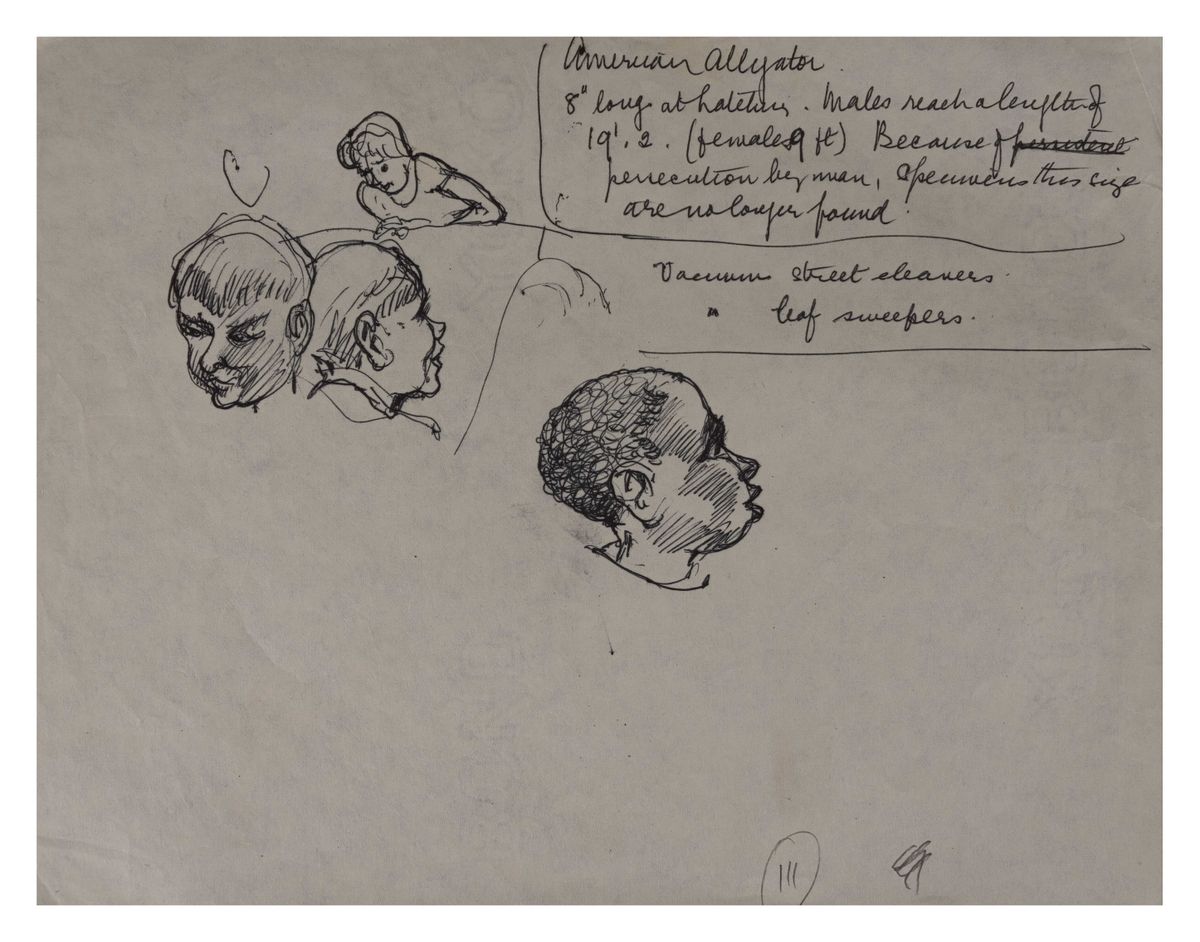 American Alligator
8" long at hatching. Males reach a length of
19'.2. (females 9 ft) Because of persistent
persecution by man, specimens this size
are no longer found.
Vacuum street cleaners.
" leaf sweepers.
111